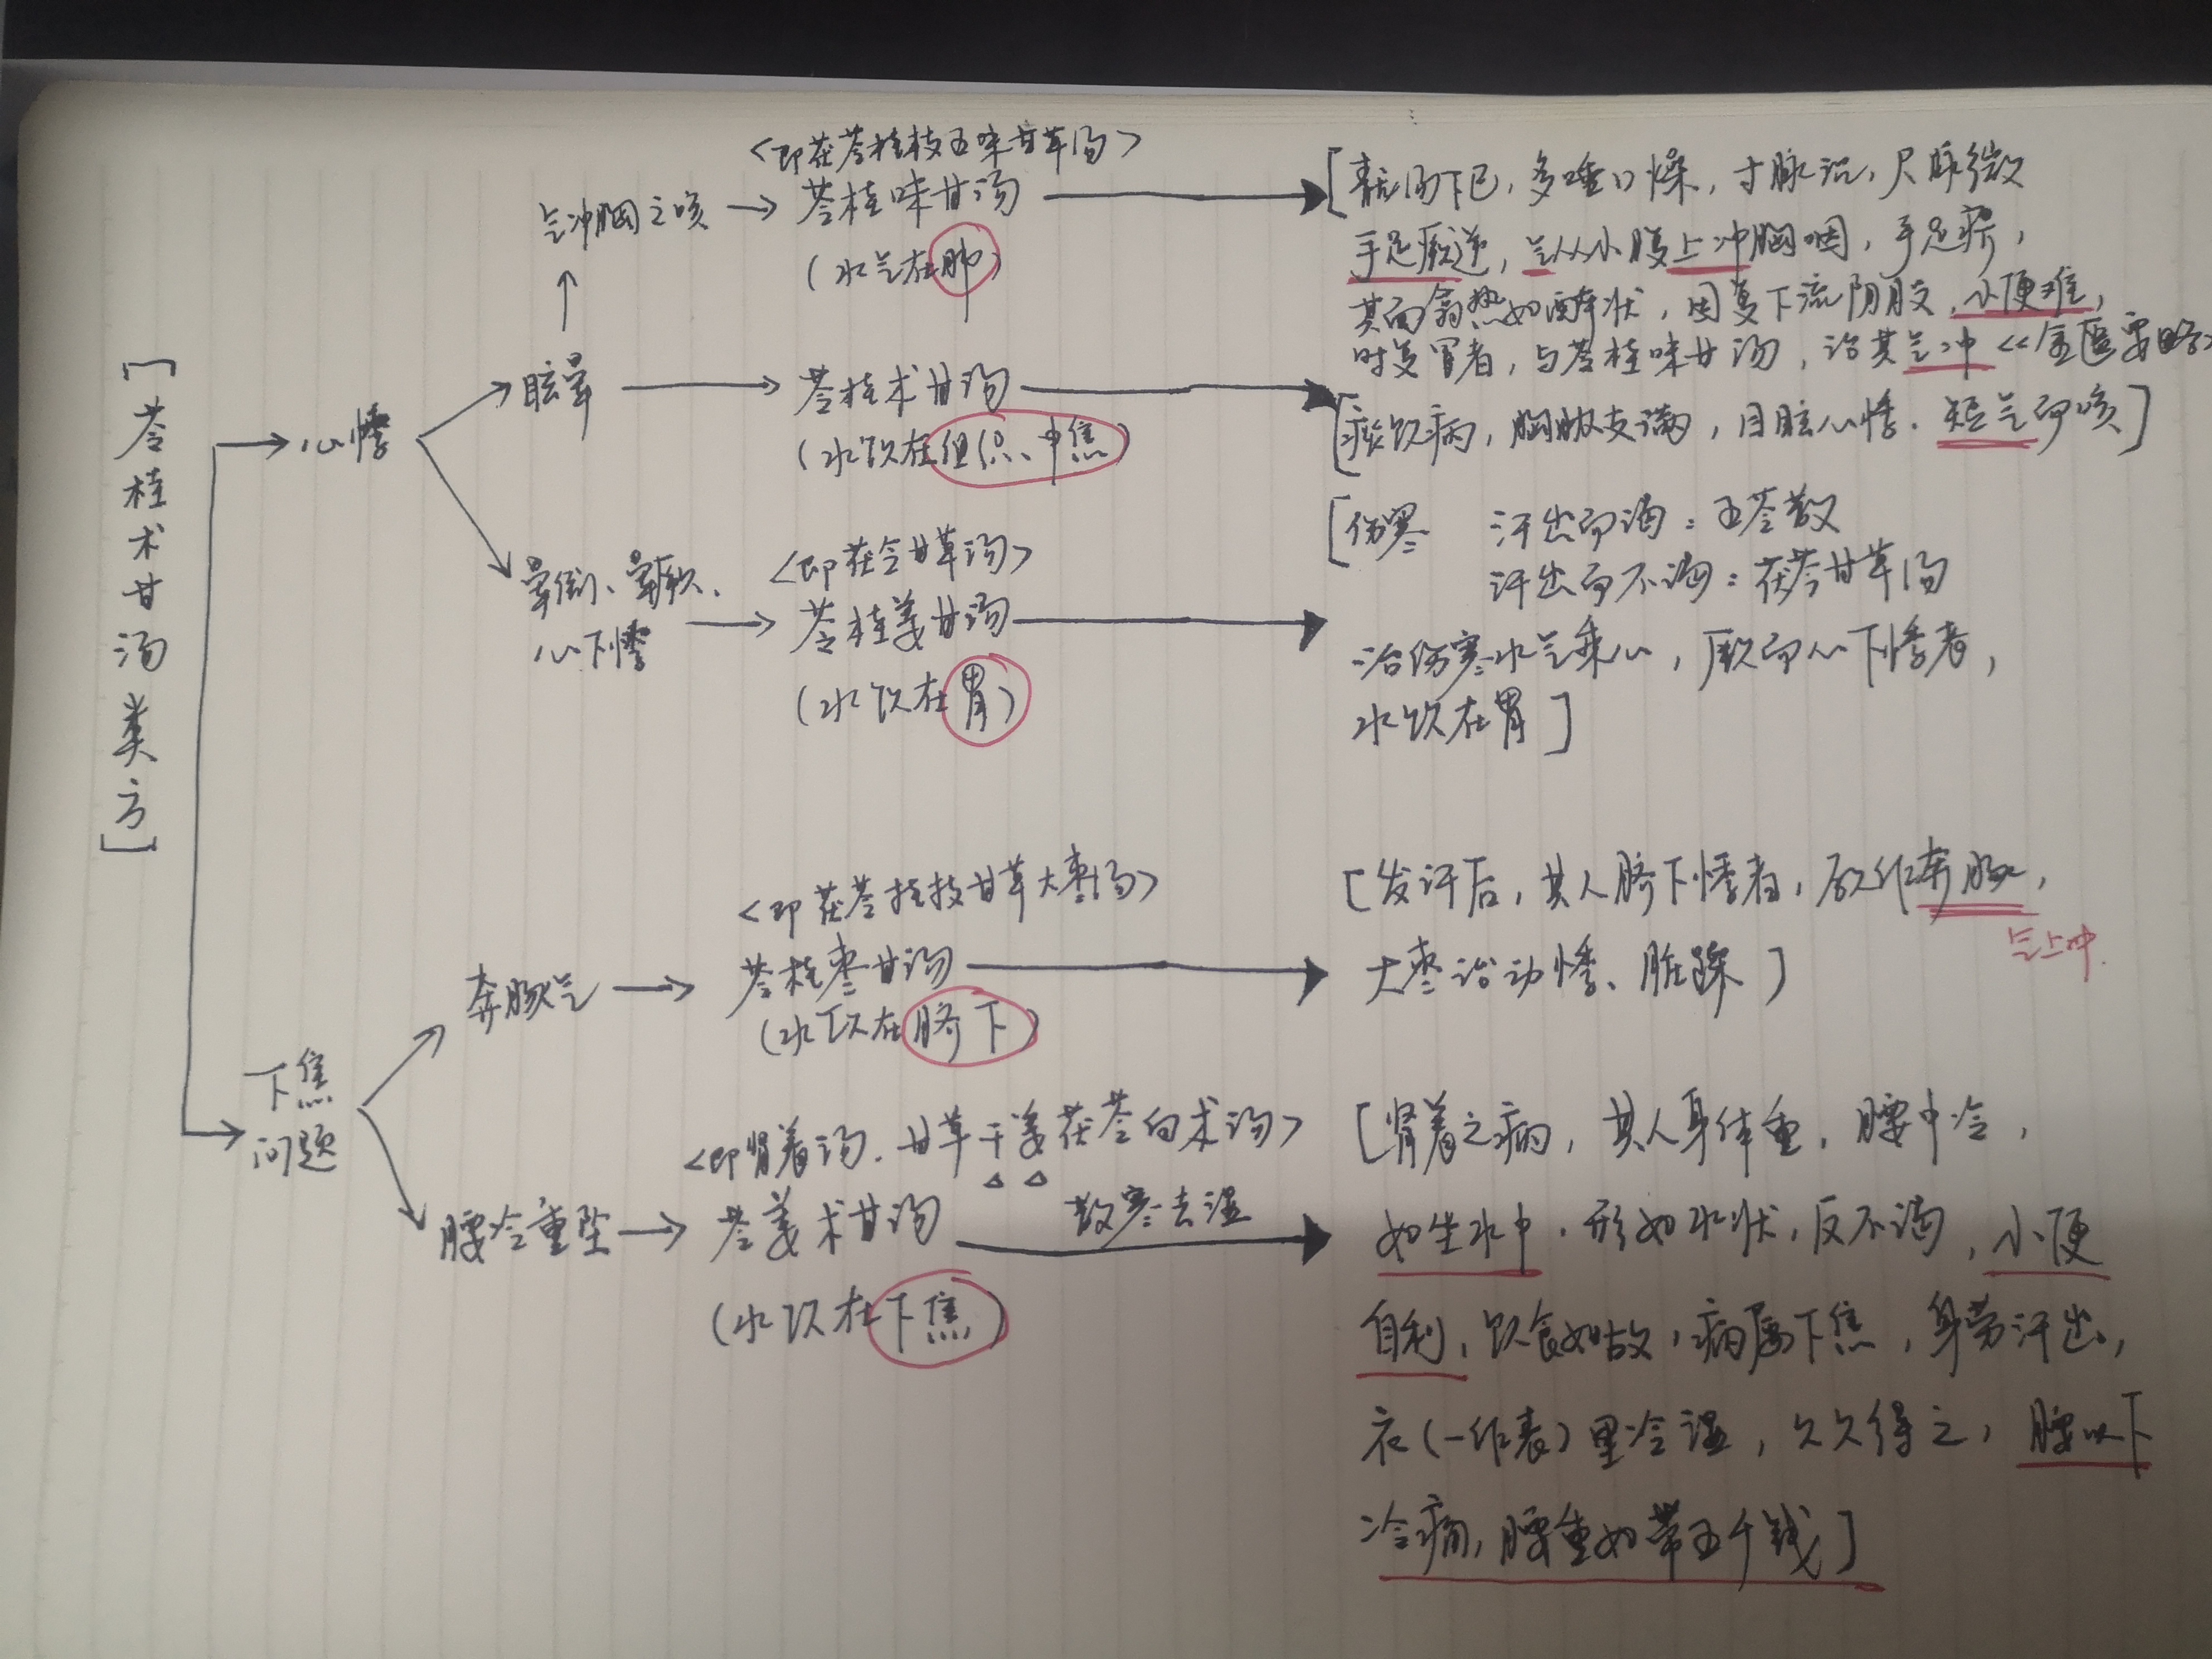 [苓桂术甘汤类方]
心悸
眩晕
气冲胸之咳
<即茯苓桂枝五味甘草汤>
苓桂味甘汤
(水气在肺)
[青龙汤下已,多唾口燥,寸脉沉,尺脉微
手足厥逆,气从小腹上冲胸咽,手足痹,
其面翕热如醉状,因复下流阴股,小便难,
时复冒者,与苓桂味甘汤,治其气冲《金匮要略》
苓桂术甘汤
(水饮在组织、中焦)
[痰饮病,胸胁支满,目眩心悸.短气而咳]
晕倒、晕厥、
心下悸
<即茯苓甘草汤>
苓桂姜甘汤
(水饮在胃)
[伤寒 汗出而渴:五苓散
汗出而不渴:茯苓甘草汤
治伤寒水气乘心,厥而心下悸者,
水饮在胃]
下焦
问题
奔豚气
<即茯苓桂枝甘草大枣汤>
苓桂枣甘汤
(水饮在脐下)
[发汗后,其人脐下悸者,欲作奔豚,
气上冲.
大枣治动悸、脏躁]
腰冷重坠
<即肾着汤.甘草干姜茯苓白术汤>
苓姜术甘汤
散寒去湿
(水饮在下焦)
[肾着之病,其人身体重,腰中冷,
如坐水中.形如水状,反不渴,小便
自利,饮食如故,病属下焦,身劳汗出,
衣(一作表)里冷湿,久久得之,腰以下
冷痛,腰重如带五千钱]